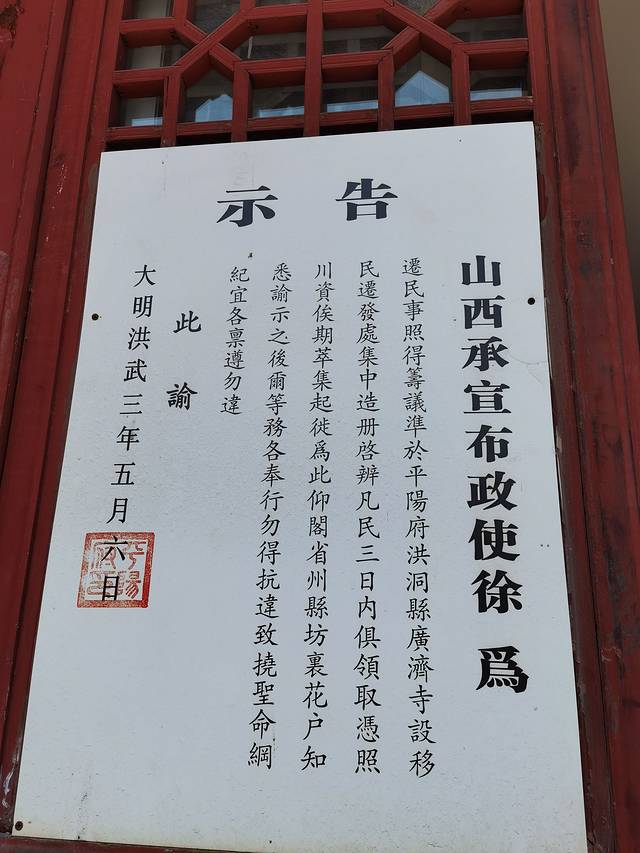 告示
山西承宣布政使徐 爲
遷民事照得籌議準於平陽府洪洞縣廣濟寺設移
民遷發處集中造册啓辨凡民三日内俱領取憑照
川資俟期萃集起徙爲此仰閣省州縣坊裏花户知
悉諭示之後爾等務各奉行勿得抗違致撓聖命綱
紀宜各禀遵勿違
此諭
大明洪武三年五月六日